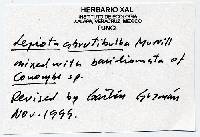 HERBARIO XAL
INSTITUTO DE ECOLOGIA
XALAPA, VERACRUZ, MEXICO
FUNGI
Lepiota abruptibulba Murrill
mixed with basidiomata of
Conocybe sp.
Revised by Gastón Guzmán
Nov. 1995.